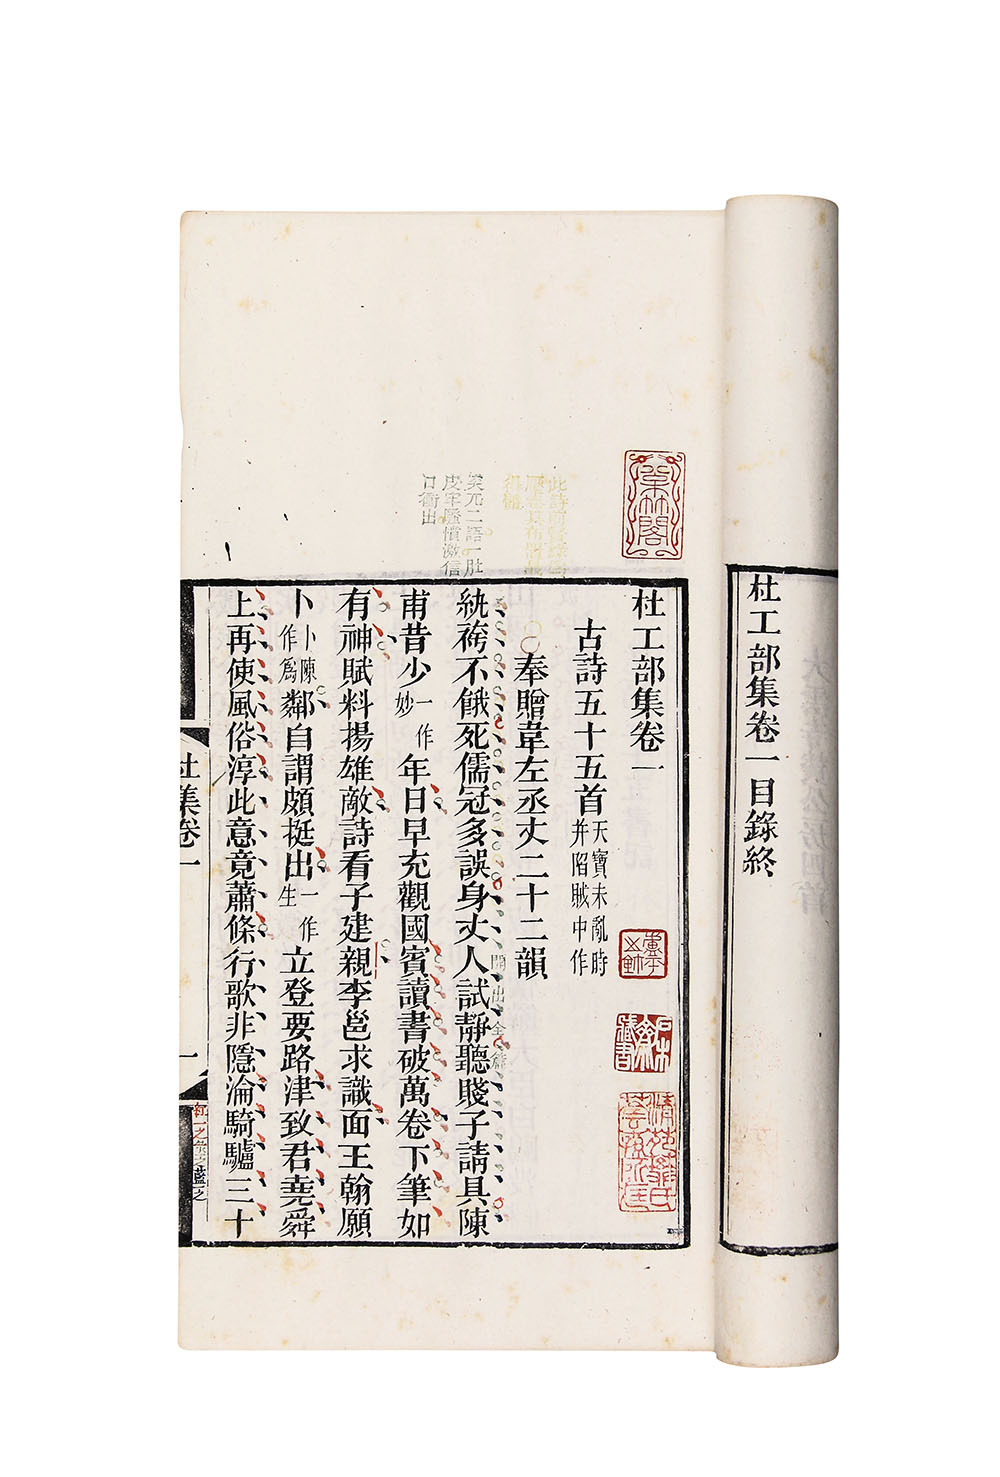 杜工部集卷一目錄終
杜工部集卷一
古詩五十五首天寶未亂時并陷賊中作
奉贈韋左丞丈二十二韻
紈袴不餓死儒冠多誤身丈人試靜聽賤子請具陳
開出全篇
甫昔少一作妙年日早充觀國賓讀書破萬卷下筆如
有神賦料揚雄敵詩看子建親李邕求識面王翰願
卜卜陳作為鄰自謂頗挺出一作生立登要路津致君堯舜
上再使風俗淳此意竟蕭條行歌非隱淪騎驢三十
杜集卷一
一
此詩前
語一肚
皮牢騷憤激信
口衝出